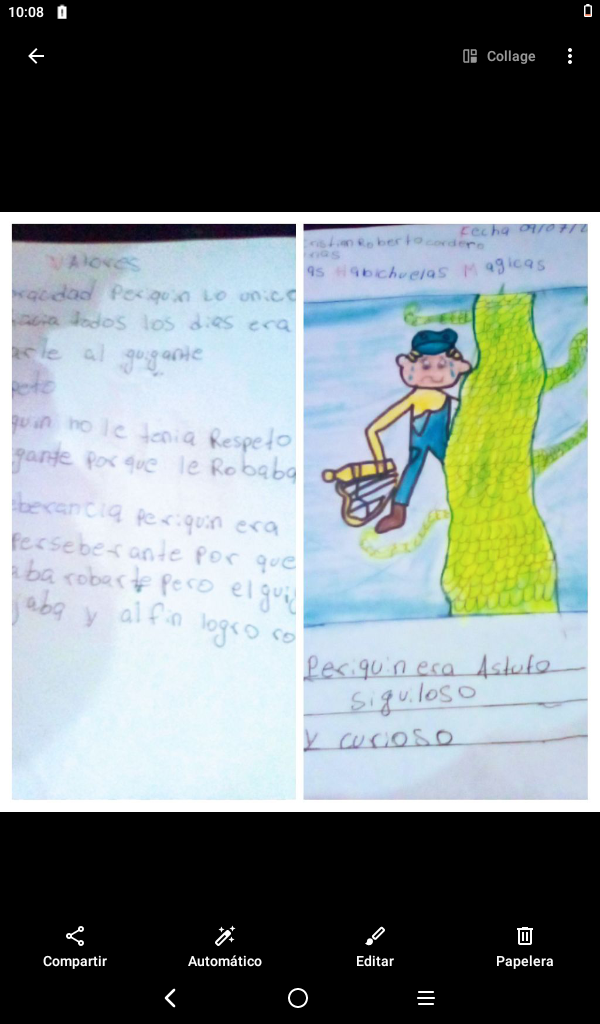 10:08
Collage
VAlores
Periquin Lo unico
todos los dias era
al guigante
peto
quin no le tenia Respeto
gante por que le Robaba
berancia periquin era
Perseberante por que
aba robarte pero el gui
jaba y al fin logro ro
Fecha 09/07/2
istian Roberto cordero
as Habichuelas Magicas
Periquin era Astuto
siguiloso
y curioso
Compartir
Automático
Editar
Papelera